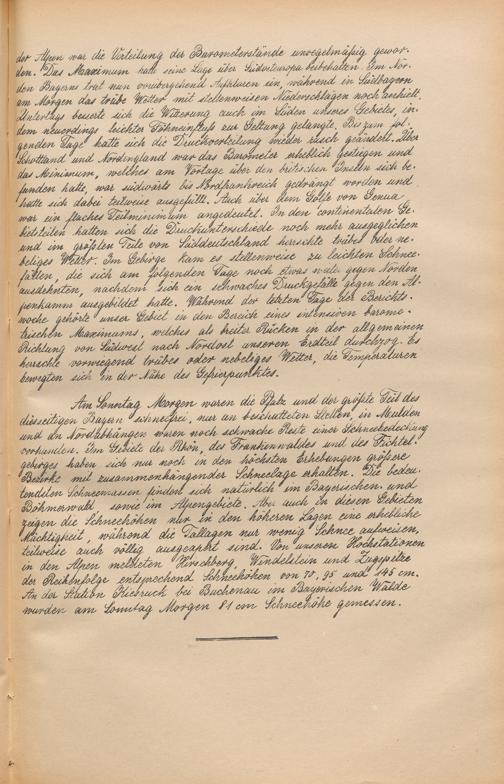 der Alpen war die Verteilung der Barometerstände unregelmäßig gewor-
den. Das Maximum hatte seine Lage über Südosteuropa beibehalten. Im Nor-
den Bayerns trat nun vorübergehend Aufklaren ein, während in Südbayern
am Morgen das trübe Wetter mit stellenweisen Niederschlägen noch anhielt.
Untertags besserte sich die Witterung auch im Süden unseres Gebietes, in-
dem neuerdings leichter Föhneinfluß zur Geltung gelangte. Bis zum fol-
genden Tage hatte sich die Druckverteilung wieder rasch geändert. Über
Schottland und Nordirland war das Barometer erheblich gestiegen und
das Minimum, welches am Vortage über den britischen Inseln sich be-
funden hatte, war südwärts bis Nordfrankreich gedrängt worden und
hatte sich dabei teilweise ausgefüllt. Auch über dem Golfe von Genua
war ein flaches Teilminimum angedeutet. In den continentalen Ge-
bietsteilen hatten sich die Druckunterschiede noch mehr ausgeglichen
und im größten Teile von Süddeutschland herrschte trübes oder ne-
beliges Wetter. Im Gebirge kam es stellenweise zu leichten Schnee-
fällen, die sich am folgenden Tage noch etwas weiter gegen Norden
ausdehnten, nachdem sich ein schwaches Druckgefälle gegen den Al-
penkamm ausgebildet hatte. Während der letzten Tage der Berichts-
woche gehörte unser Gebiet in den Bereich eines intensiven barome-
trischen Maximums, welches als breiter Rücken in der allgemeinen
Richtung von Südwest nach Nordost unseren Erdteil durchzog. Es
herrschte vorwiegend trübes oder nebeliges Wetter, die Temperaturen
bewegten sich in der Nähe des Gefrierpunktes.
Am Sonntag Morgen waren die Pfalz und der größte Teil des
diesseitigen Bayern schneefrei, nur an beschatteten Stellen, in Mulden
und an Nordabhängen waren noch schwache Reste einer Schneebedeckung
vorhanden. Im Gebiete der Rhön, des Frankenwaldes und des Fichtel-
gebirges haben sich nur noch in den höchsten Erhebungen größere
Bezirke mit zusammenhängender Schneelage erhalten. Die bedeu-
tendsten Schneemassen finden sich natürlich im Bayerischen und
Böhmerwald sowie im Alpengebiete. Aber auch in diesen Gebieten
zeigen die Schneehöhen nur in den höheren Lagen eine erhebliche
Mächtigkeit, während die Tallagen nur wenig Schnee aufweisen,
teilweise auch völlig ausgeapert sind. Von unseren Hochstationen
in den Alpen meldeten Hirschberg, Wendelstein und Zugspitze
der Reihenfolge entsprechend Schneehöhen von 70, 95 und 145 cm.
An der Station bei Buchenau im Bayerischen Walde
wurden am Sonntag Morgen 81 cm Schneehöhe gemessen.